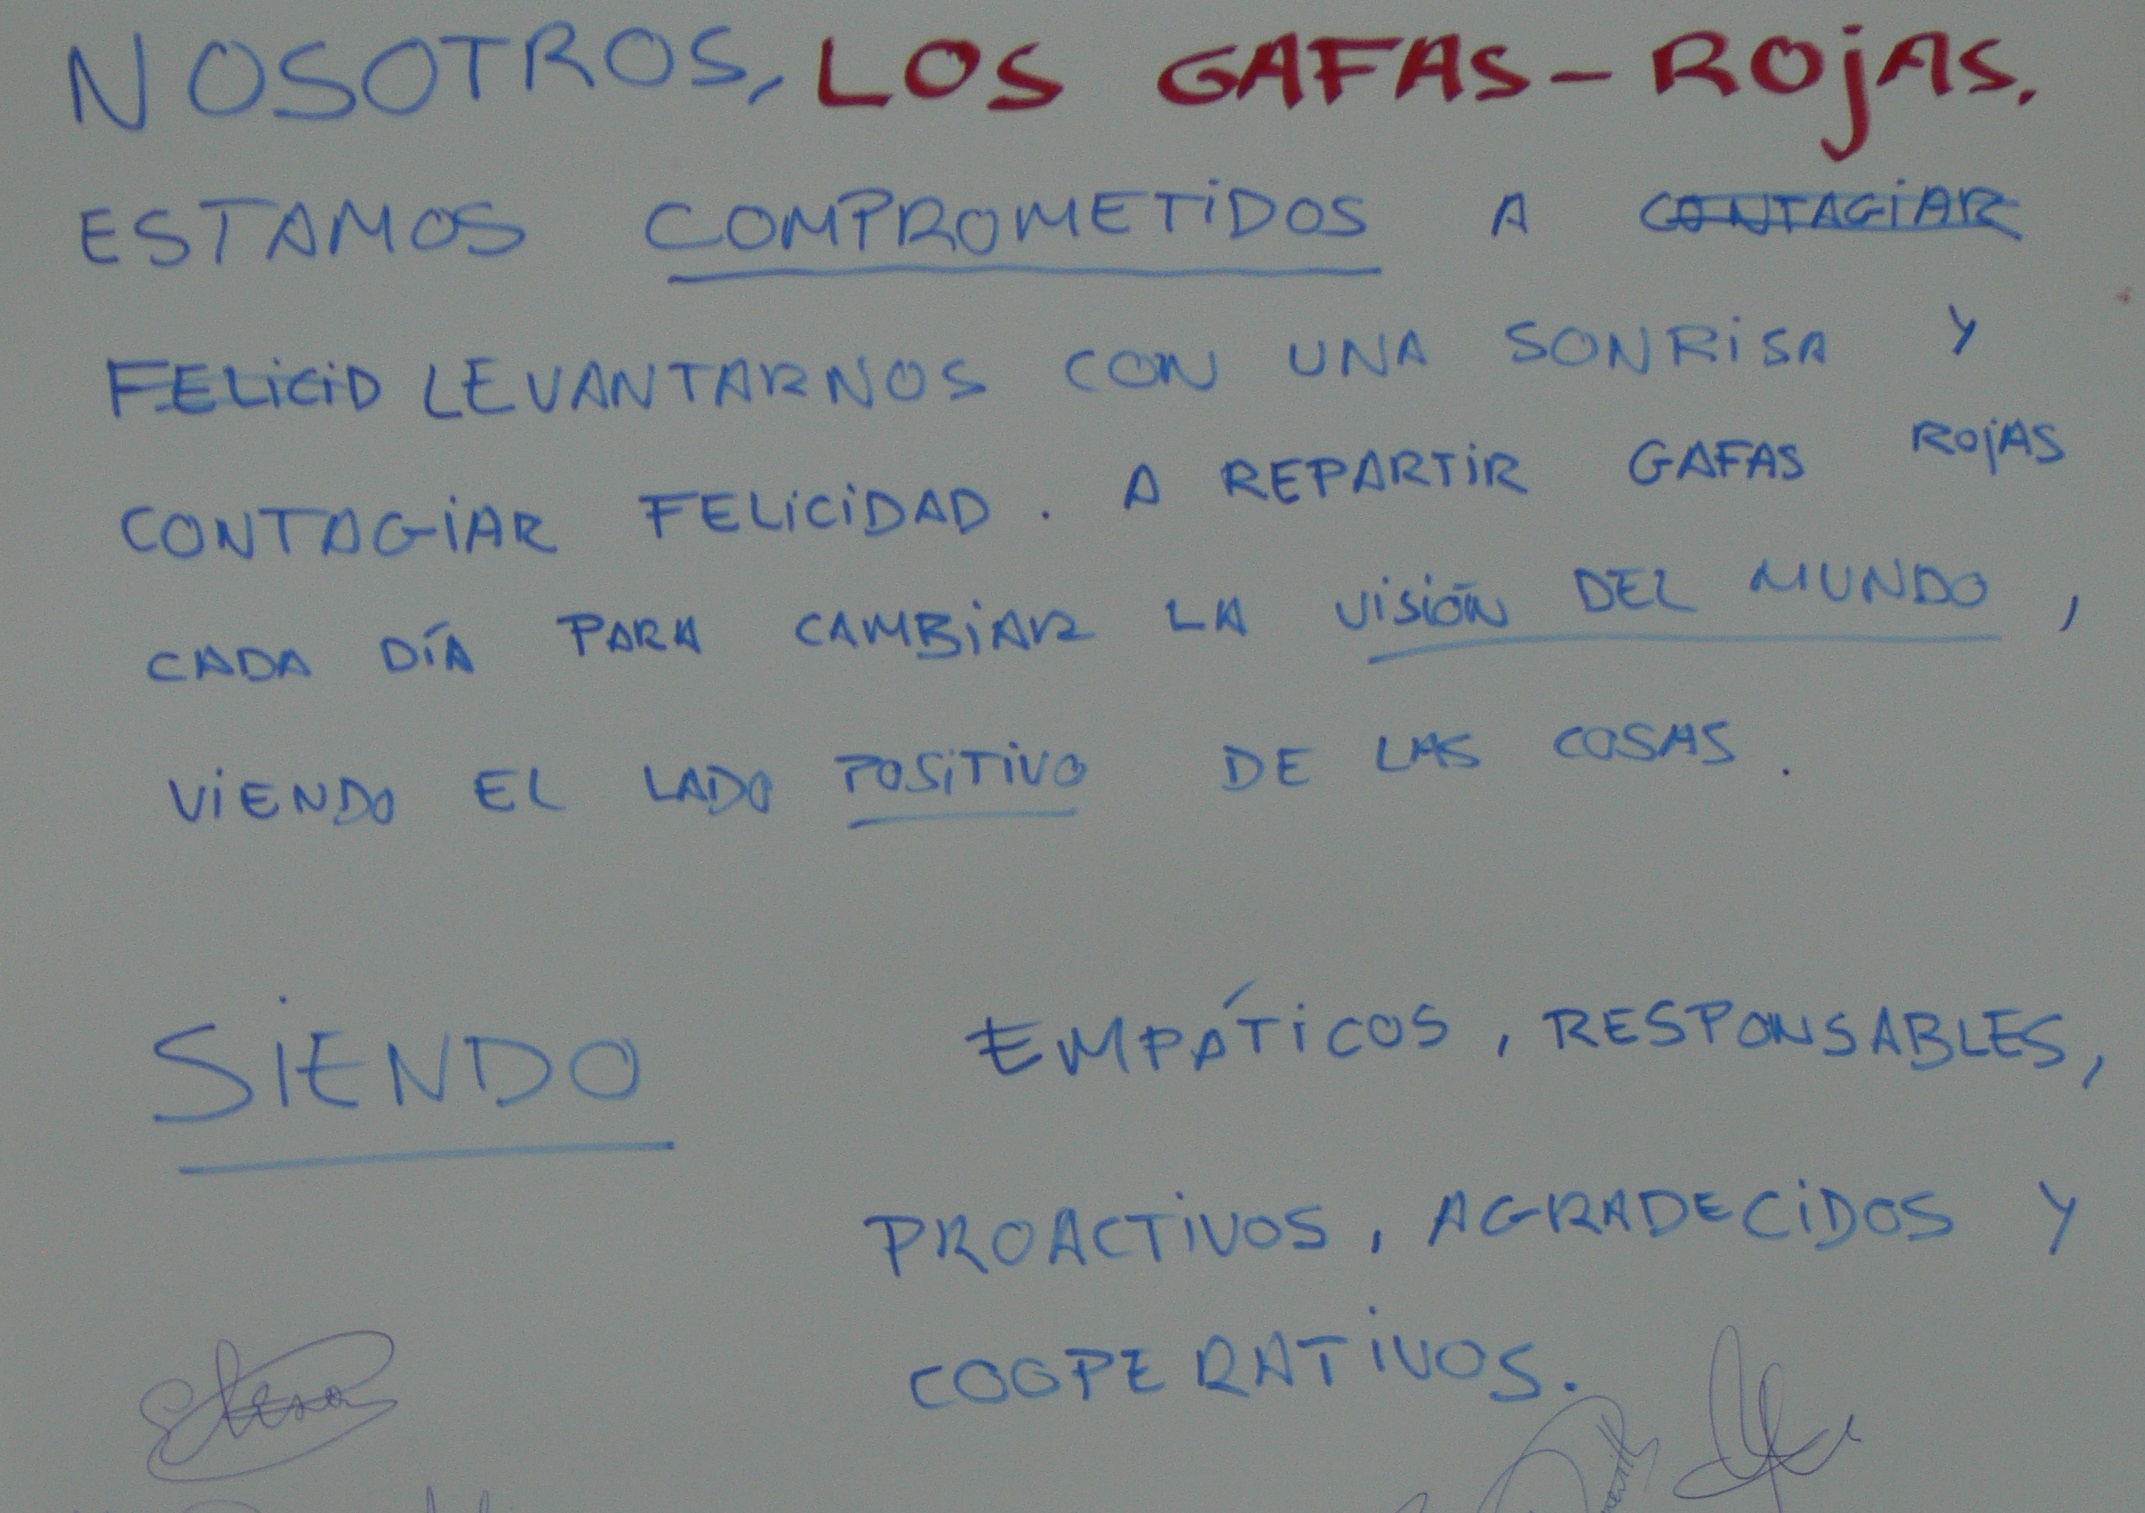 NOSOTROS, LOS GAFAS-ROJAS.
ESTAMOS COMPROMETIDOS A CONTAGIAR
FELICID LEVANTARNOS CON UNA SONRISA Y
CONTAGIAR FELICIDAD. A REPARTIR GAFAS ROJAS
CADA DÍA PARA CAMBIAR LA VISIÓN DEL MUNDO,
VIENDO EL LADO POSITIVO DE LAS COSAS.
SIENDO EMPÁTICOS, RESPONSABLES,
PROACTIVOS, AGRADECIDOS Y
COOPERATIVOS.